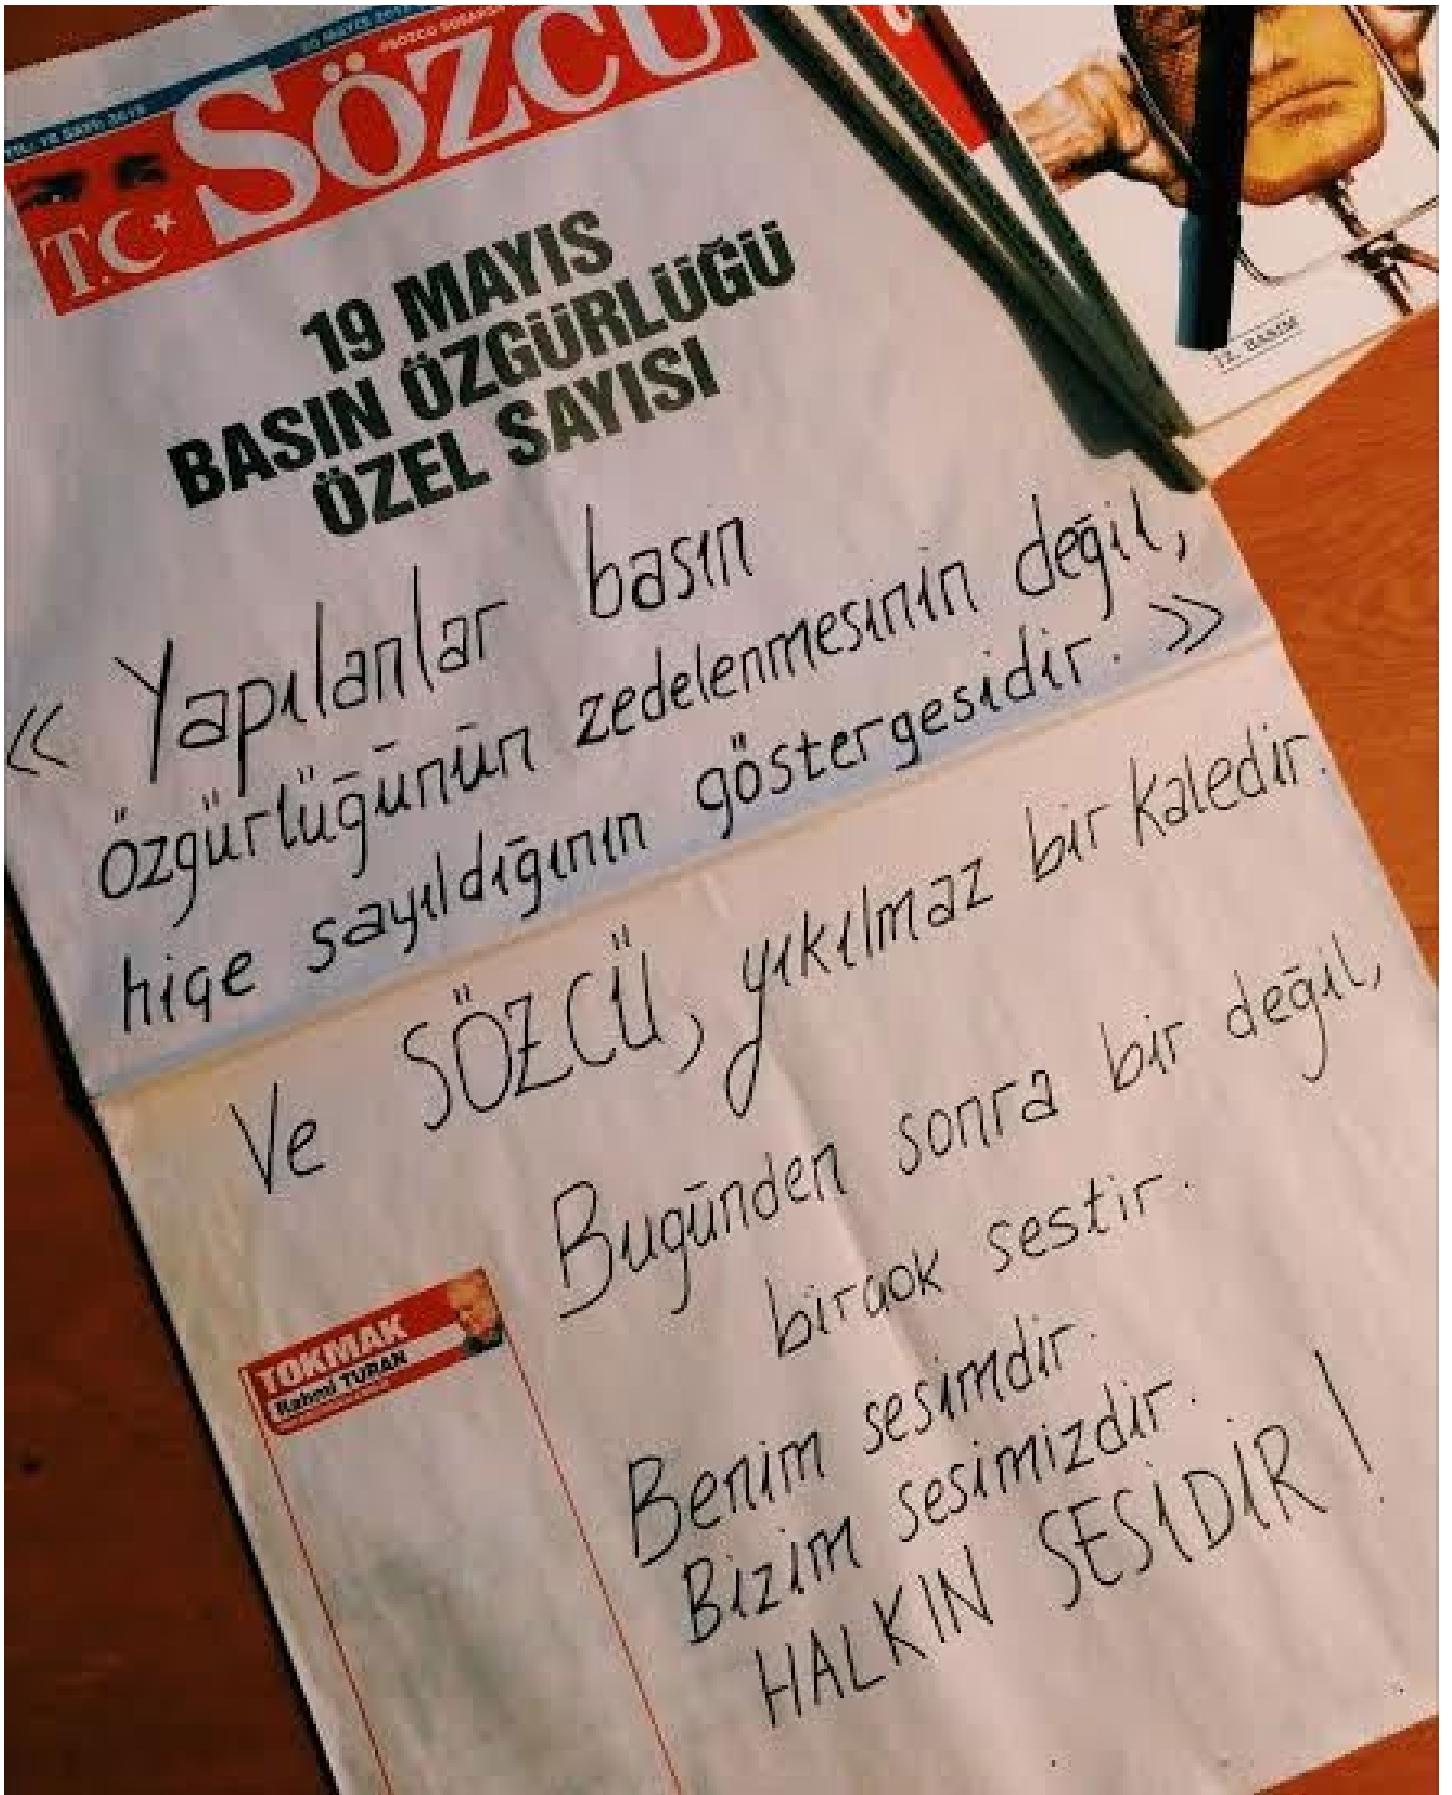 SÖZCÜ
T.C
19 MAYIS
BASIN ÖZGÜRLÜĞÜ
ÖZEL SAYISI
« Yapılanlar basın
özgürlüğünün zedelenmesinin değil,
hiçe sayıldığının göstergesidir. »
Ve SÖZCÜ, yıkılmaz bir kaledir.
Bugünden sonra bir değil,
birçok sestir.
Benim sesimdir.
Bizim sesimizdir.
HALKIN SESİDİR !
TOKMAK
Rahmi TURAN
12. BASIM